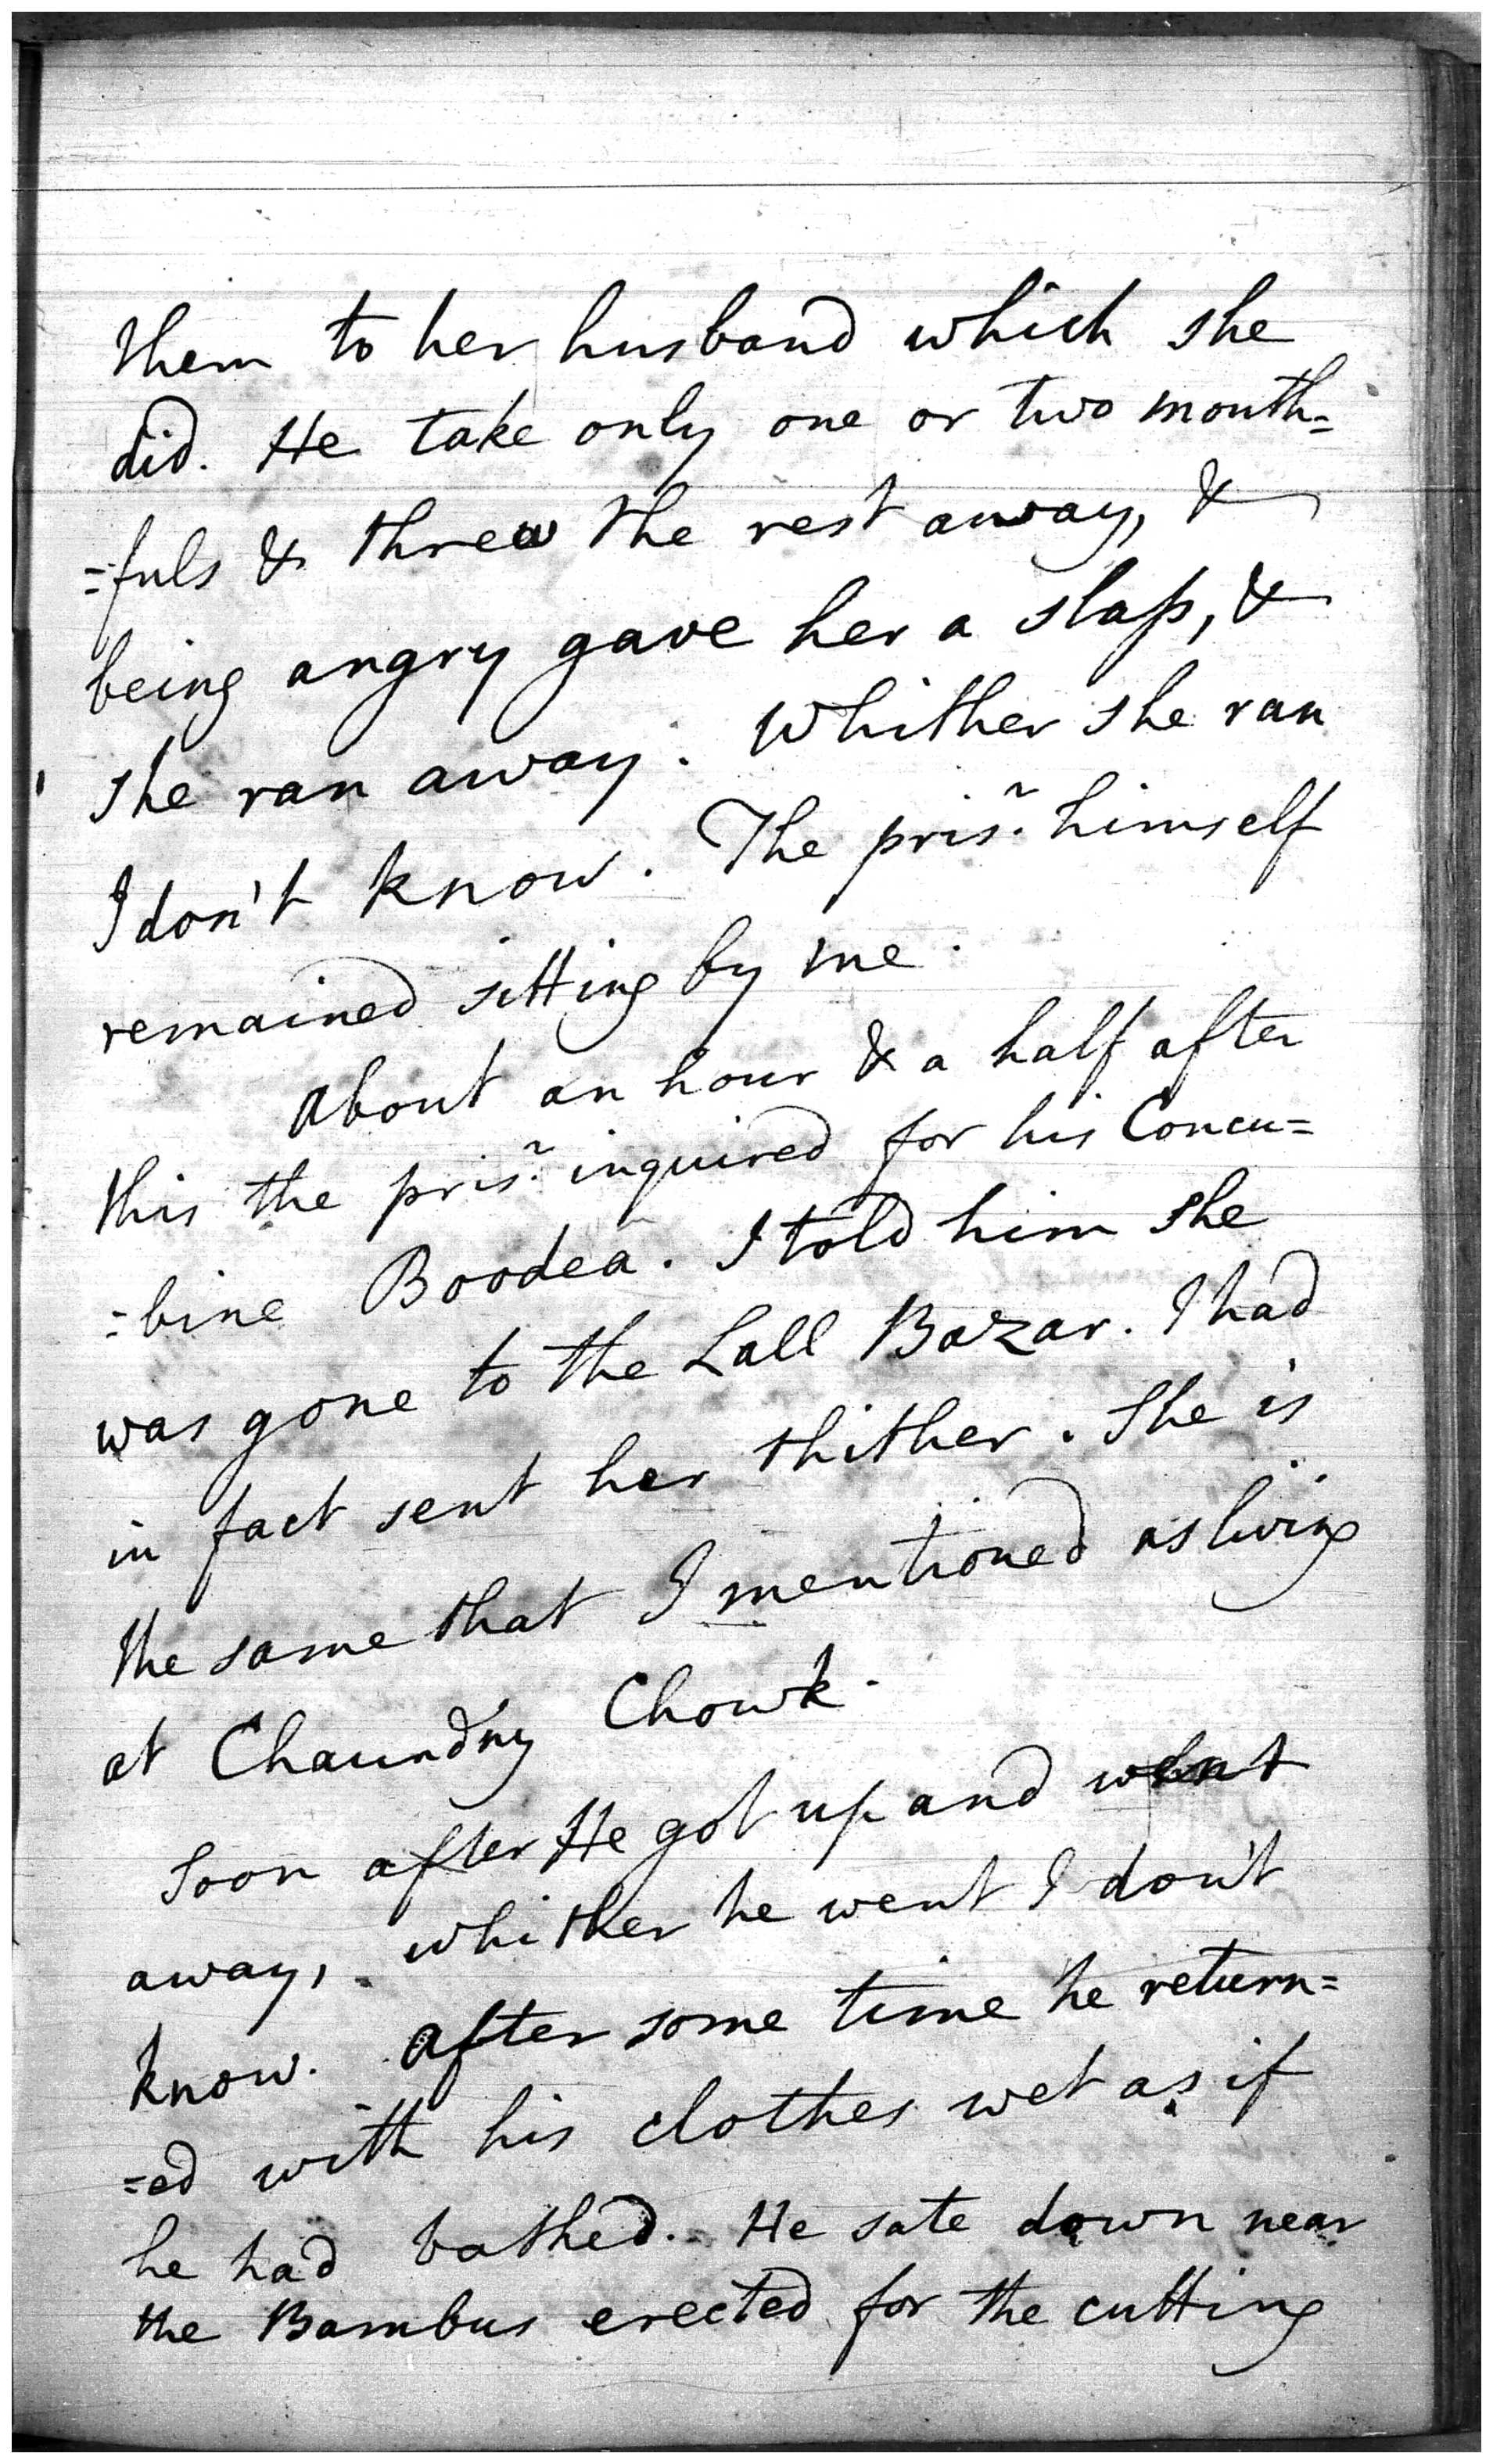 them to her husband which she
did. He take only one or two mouth=
=fuls & threw the rest away, &
being angry gave her a slap, &
she ran away. Whither she ran
I don't know. The prisr. himself
remained sitting by me.
About an hour & a half after
this the prisr. inquired for his Concu=
=bine Boodea. I told him she
was gone to the Lall Bazar. I had
in fact sent her thither. She is
the same that I mentioned as living
at Chaundny Chowk.
Soon after He got up and went
away, whither he went I don't
know. After some time he return=
=ed with his clothes wet as if
he had bathed. He sate down near
the Bambus erected for the cutting